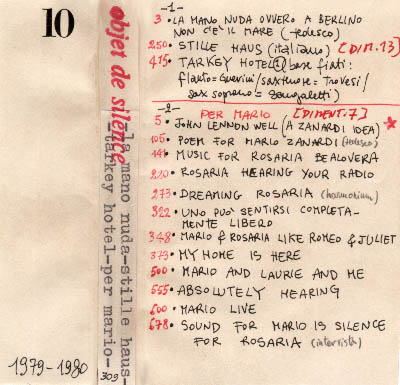 10
objet de silence
—la mano nuda—stille haus—
—tarkey hotel—per mario—
309
1979-1980
—1—
3 • LA MANO NUDA OVVERO A BERLINO
NON C'È IL MARE (tedesco)
250 • STILLE HAUS (italiano) [DIM.13]
415 • TARKEY HOTEL (base fiati:
flauto = Guerini / sax tenore = Trovesi /
sax soprano = Sangaletti)
—2— PER MARIO [DIMENT.7]
5 • JOHN LENNON WELL (A ZANARDI IDEA) *
105 • POEM FOR MARIO ZANARDI (tedesco)
141 • MUSIC FOR ROSARIA BEALOVERA
210 • ROSARIA HEARING YOUR RADIO
273 • DREAMING ROSARIA (harmonium)
322 • UNO PUO' SENTIRSI COMPLETA-
MENTE LIBERO
348 • MARIO & ROSARIA LIKE ROMEO & JULIET
373 • MY HOME IS HERE
500 • MARIO AND LAURIE AND ME
555 • ABSOLUTELY HEARING
600 • MARIO LIVE
678 • SOUND FOR MARIO IS SILENCE
FOR ROSARIA (intervista)